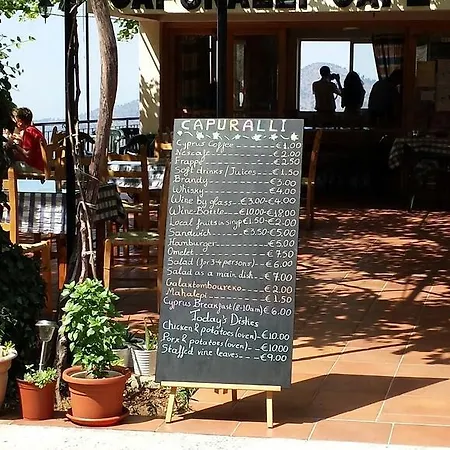 CAPURALLI CAFE
CAPURALLI
Cyprus Coffee €1.00
Nescafe €2.00
Frappe €2.50
Soft drinks/Juices €1.50
Brandy €3.00
Whisky €4.00
Wine by glass €3.00-€4.00
Wine-Bottle €10.00-€12.00
Local fruits in syrup €1.50-€2.00
Sandwich €3.50-€5.00
Hamburger €5.00
Omelet €7.50
Salad (for 3-4 persons) €6.00
Salad as a main dish €7.00
Galaxtomboureko €2.00
Mahalepi €1.50
Cyprus Breakfast (8-10am) €6.00
Today's Dishes
Chicken & potatoes (oven) €10.00
Pork & potatoes (oven) €10.00
Staffed vine leaves €9.00